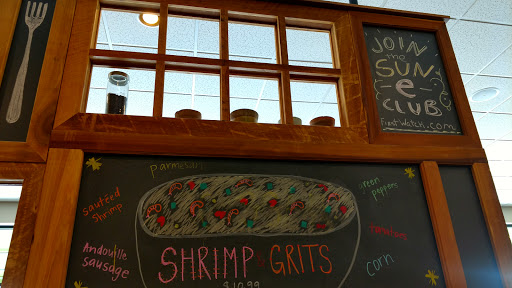 JOIN
the
SUN
e
CLUB
FirstWatch.com
parmesan
sautéed
shrimp
green
peppers
Andouille
sausage
tomatoes
corn
SHRIMP & GRITS
$10.99